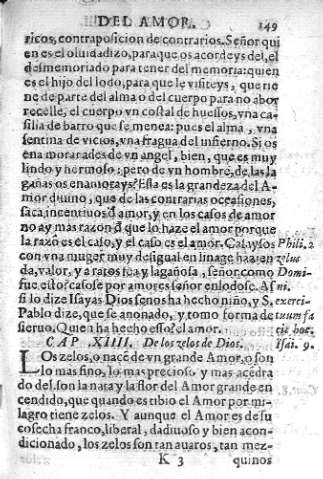 DEL AMOR. 149
ricos, contraposicion de contrarios. Señor qui
en es el oluidadizo, para que os acordeys del, el
desmemoriado para tener del memoria: quien
es el hijo del lodo, para que le visiteys, que tie
ne de parte del alma o del cuerpo para no abor
recelle, el cuerpo vn costal de huessos, vna ca-
silia de barro que se menea: pues el alma, vna
sentina de vicios, vna fragua del infierno. Si os
enamorarades de vn angel, bien, que es muy
lindo y hermoso: pero de vn hombre, de las la
gañas os enamorays? Esta es la grandeza del A-
mor diuino, que de las contrarias ocasiones,
saca incentiuos đ amor, y en los casos de amor
no ay mas razon đ que lo haze el amor porque
la razō es el caso, y el caso es el amor. Casaysos Phili. 2
con vna muger muy desigual en linage hazien zelus
da, valor, y a ratos fea y lagañosa, señor como Domi-
fue esto? casose por amores señor enlodose. As ni.
si lo dize Isayas Dios se nos ha hecho niño, y S. exerci-
Pablo dize, que se anonado, y tomo forma de tuum fa
sieruo. Quiē ha hecho esso? el amor. cie hoc.
CAP XIIII. De los zelos de Dios. Isai. 9.
Los zelos, o nacē de vn grande Amor, o son
lo mas fino, lo mas precioso y mas acedra
do del. son la nata y la flor del Amor grande en
cendido, que quando es tibio el Amor por mi-
lagro tiene zelos. Y aunque el Amor es de su
cosecha franco, liberal, dadiuoso y bien acon-
dicionado, los zelos son tan auaros, tan mez-
K 3 quinos